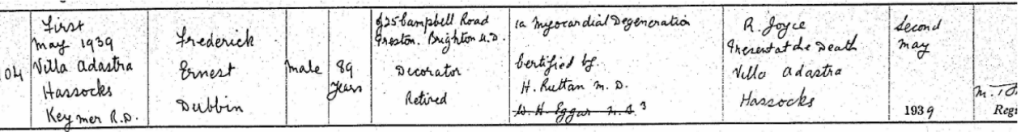 04
First
May 1939
Villa Adastra
Hassocks
Keymer R.D.
Frederick
Ernest
Dubbin
male
89
years
of 25 Campbell Road
Preston. Brighton U.D.
Decorator
Retired
1a Myocardial Degeneration
Certified by
H. Ruttan M. D.
R. Joyce
Present at the Death
Villa Adastra
Hassocks
Second
May
1939
Regi